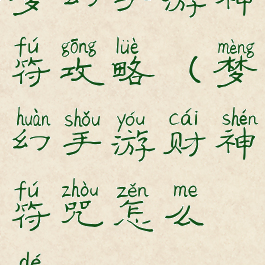 游 神
fú gōng lüè mèng
符 攻 略 （ 梦
huàn shǒu yóu cái shén
幻 手 游 财 神
fú zhòu zěn me
符 咒 怎 么
dé